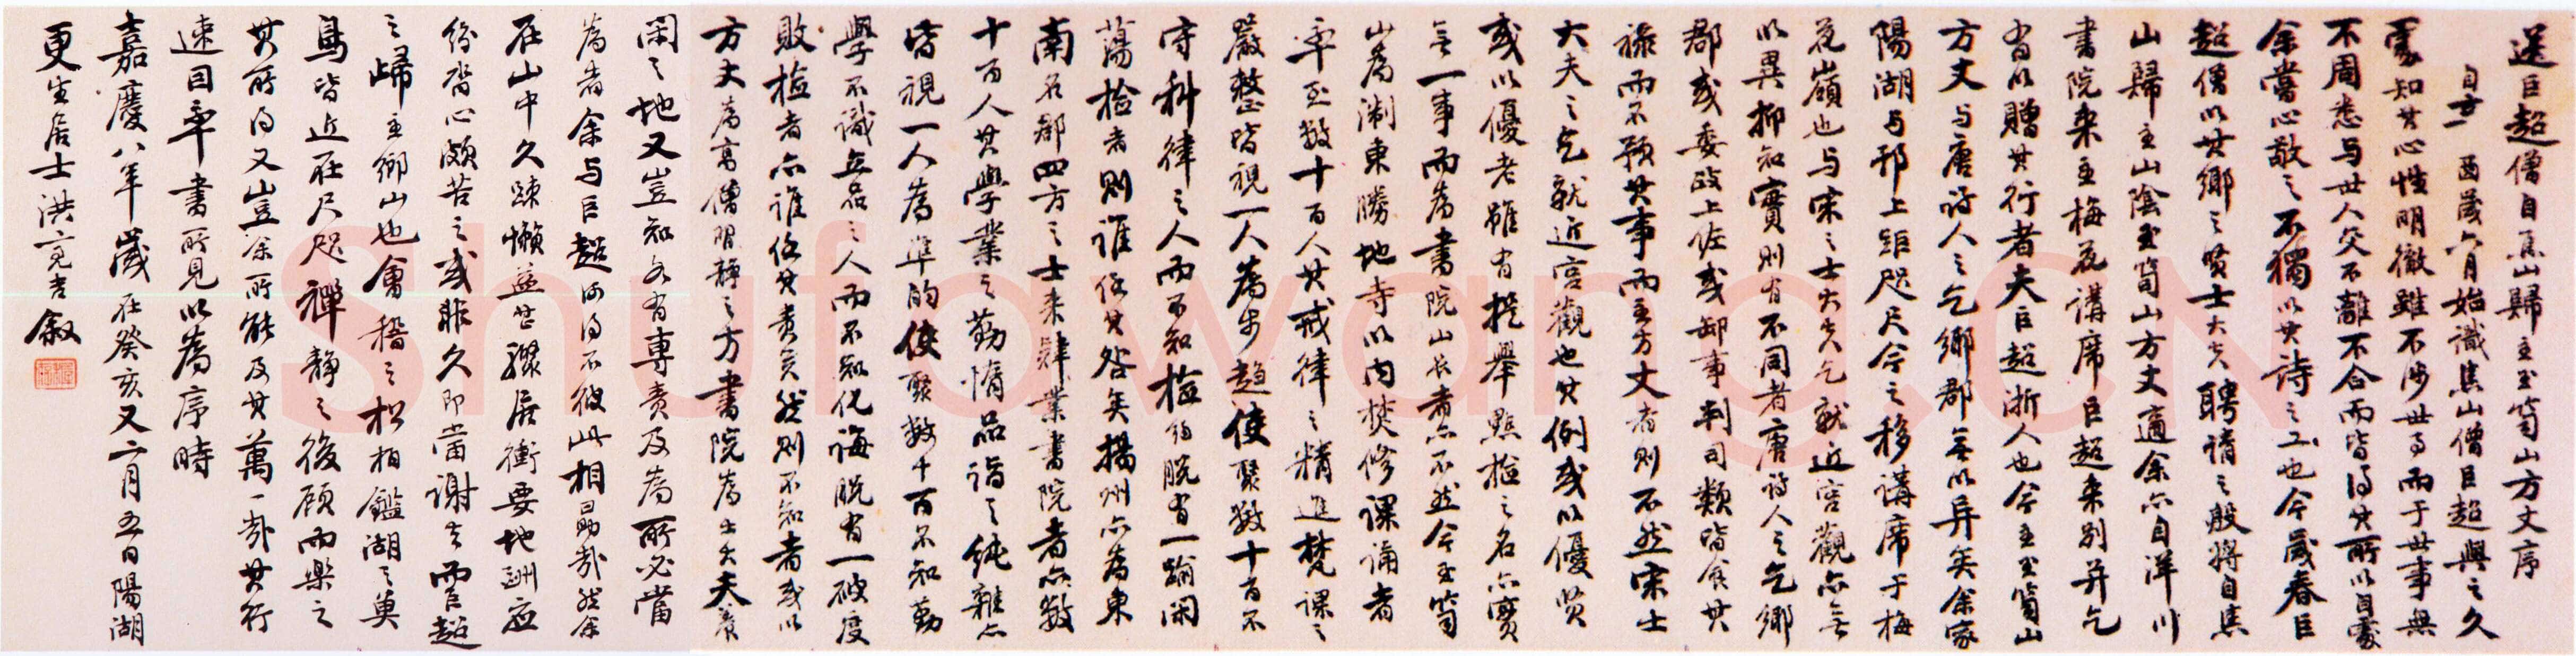 送巨超僧自焦山歸主玉笥山方丈序
自辛酉歲六月始識焦山僧巨超與之久
處知其心性明徹雖不涉世事而于世事無
不周悉与世人交不離不合而皆得其所以自處
余嘗心敬之不獨以其詩之工也今歲春巨
超僧以其鄉之賢士大夫聘請之殷將自焦
山歸主山陰玉笥山方丈適余亦自洋川
書院来主梅花講席巨超来别并乞
有以贈其行者夫巨超浙人也今主玉笥山
方丈与唐時人之乞鄉郡無以异矣余家
陽湖与邗上距咫尺今之移講席于梅
花嶺也与宋之士大夫乞就近宫觀亦無
以異抑知實則有不同者唐時人之乞鄉
郡或委政上佐或卸事判司類皆食其
禄而不預其事而主方丈者則不然宋士
大夫之乞就近宫觀也其例或以優賢
或以優老雖有提舉點檢之名亦實
無一事而為書院山长者亦不然今玉笥
山為淛東勝地寺以内焚修課誦者
率至數十百人其戒律之精進梵課之
嚴整皆視一人為步趨使聚數十百不
守科律之人而不知檢約脱有一踰閑
蕩檢者則誰任其咎矣揚州亦為東
南名郡四方之士来肄業書院者亦數
十百人其學業之勤惰品詣之純雜亦
皆視一人為準的使聚數十百不知勤
學不識立品之人而不知化誨脱有一破度
敗檢者亦誰任其责矣然則不知者或以
方丈為高僧習静之方書院為士大夫養
閑之地又豈知各有專责及為所必當
為者余与巨超何得不彼此相勗哉然余
在山中久疎懒益甚驟居衝要地酬应
紛沓心頗苦之或非久即當谢去而巨超
之歸主鄉山也會稽之松柏鑑湖之奠
鳥皆近在尺咫禅静之後顾而樂之
其所得又豈余所能及其萬一哉其行
速因率書所見以為序時
嘉慶八年歲在癸亥又二月五日陽湖
更生居士洪亮吉叙
Shufawang.CN